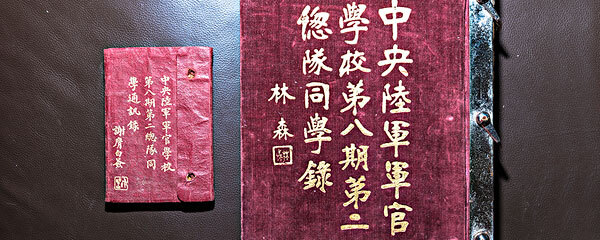 中央陸軍軍官學校
第八期第二總隊同
學通訊錄
謝膺白署
中央陸軍軍官
學校第八期第二
總隊同學錄
林森